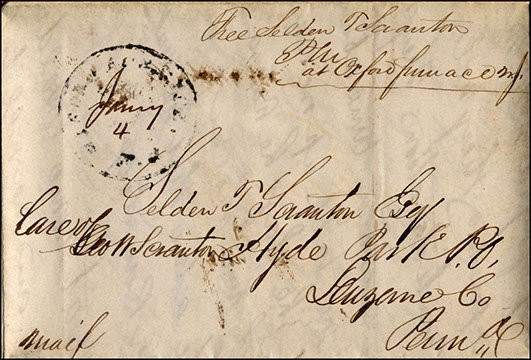 Free Selden T Scranton
P.M.
at Oxford furnace NJ
OXFORD FURNACE
N.J.
Jany
4
Selden T Scranton Esq
Care of
Geo W Scranton Hyde Park P.O,
Luzerne Co
mail Penn a